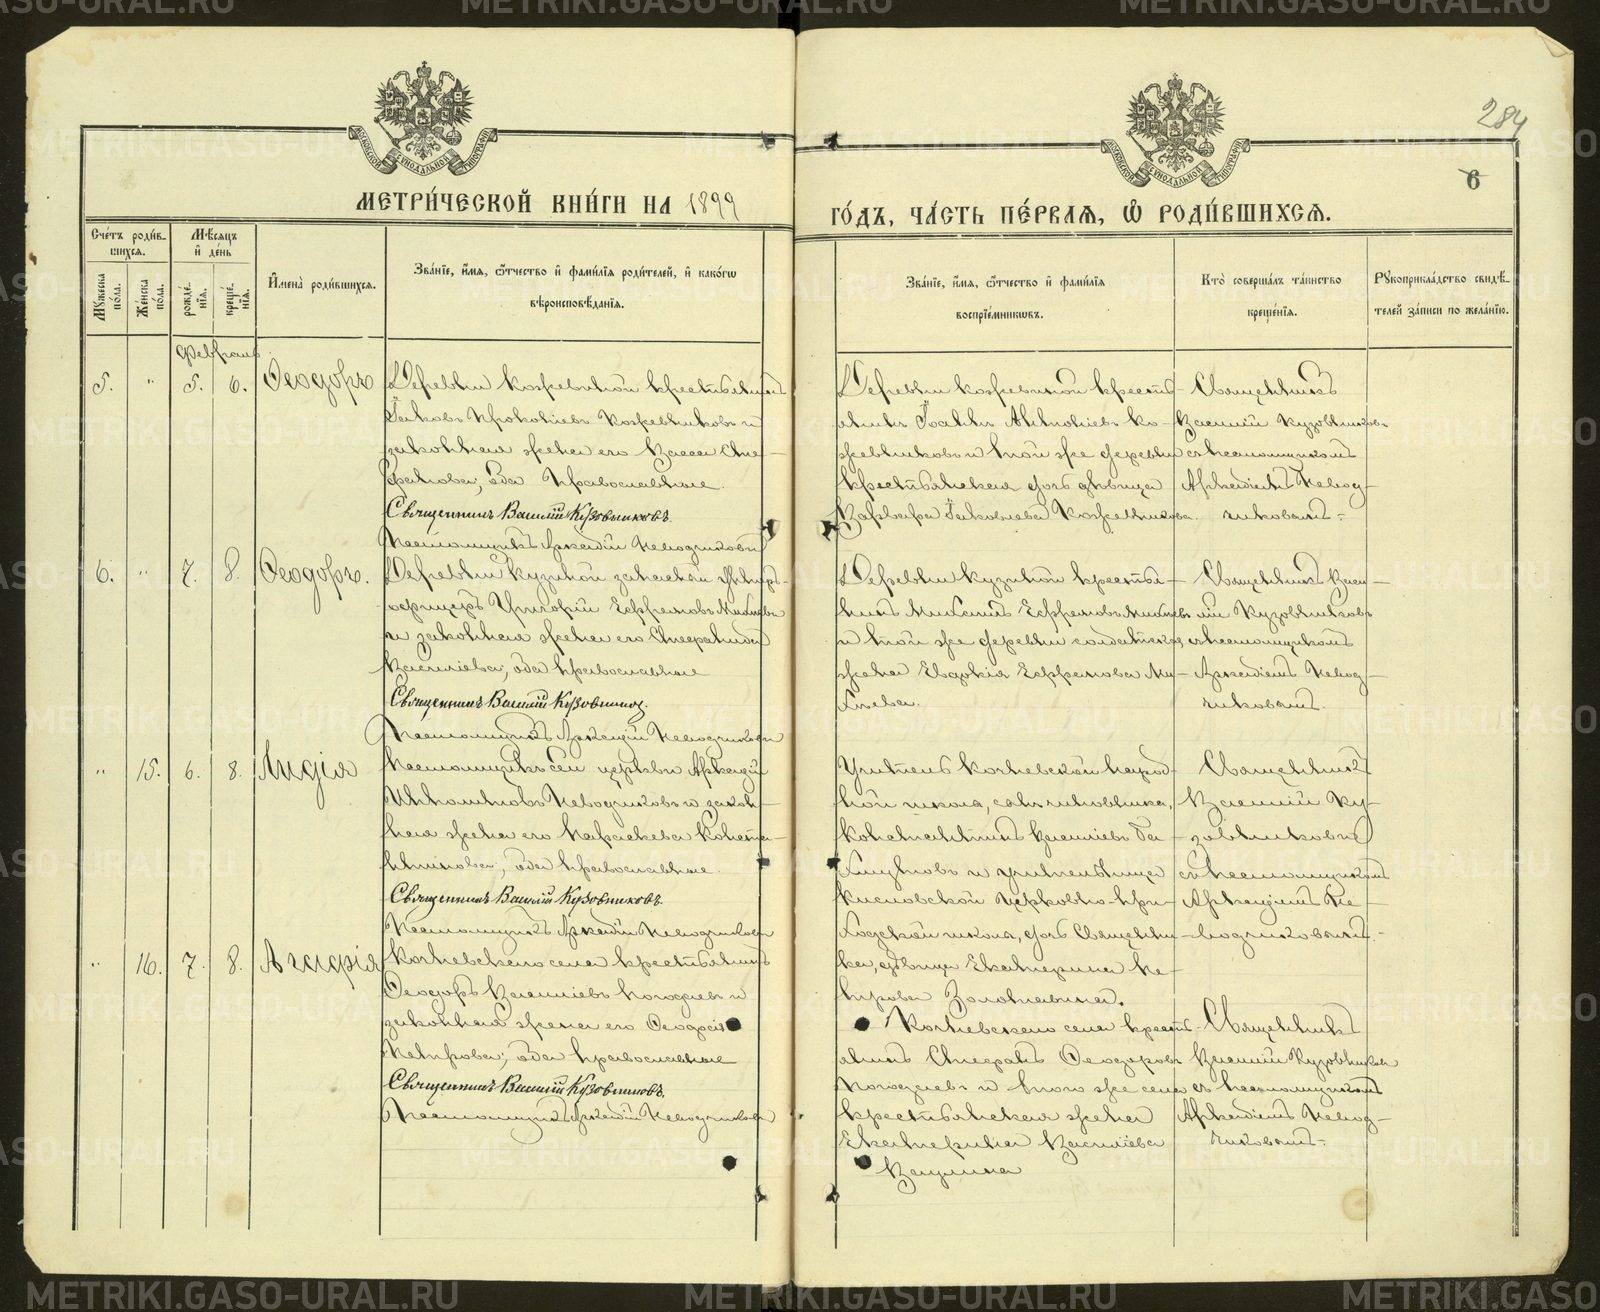 284
6
МОСКОВСКОЙ СѴНОДАЛЬНОЙ ТИПОГРАФІИ
МОСКОВСКОЙ СѴНОДАЛЬНОЙ ТИПОГРАФІИ
МЕТРИ́ЧЕСКОЙ КНИ́ГИ НА 1899
ГО́ДЪ, ЧА́СТЬ ПЕ́РВАѦ, Ѽ РОДИ́ВШИХСѦ.
Сче́тъ роди́в-
шихся.
Мѣ́сяцъ
и́ де́нь
Му́жеска по́ла.
Же́нска по́ла.
рожде́нїя.
креще́нїя.
И҆мена̀ роди́вшихся.
Зва́нїе, и҆́мя, ѻ҆́тчество и҆ фами́лїя роди́телей, и҆ како́гѡ
вѣроисповѣ́данїя.
Зва́нїе, и҆́мя, ѻ҆́тчество и҆ фами́лїя
воспрїе́мникѡвъ.
Кто̀ соверша́лъ та́инство
креще́нїя.
Рꙋкоприкла́дство свидѣ́-
телей за́писи по жела́нїю.
Февраль
5. " 5. 6. Ѳеодоръ
Деревни Кожевиной крестьянинъ
Іаковъ Прокопіевъ Кожевниковъ и
законная жена его Васса Сте-
фанова, оба Православные.
Священникъ Василій Кузовниковъ.
Псаломщикъ Аркадій Неводчиковъ
Деревни Кожевиной кресть-
янинъ Іоаннъ Антоніевъ Ко-
жевниковъ и той же деревни
крестьянская дочь девица
Варвара Іаковлева Кожевникова.
Священникъ
Василій Кузовниковъ
съ псаломщикомъ
Аркадіемъ Невод-
чиковымъ
6. " 7. 8. Ѳеодоръ.
Деревни Кузиной запасный унтеръ-
офицеръ Григорій Ефремовъ
и законная жена его Стефанида
Василіева, оба Православные
Священникъ Василій Кузовниковъ.
Псаломщикъ Аркадій Неводчиковъ
Деревни Кузиной крестья-
нинъ Ефремовъ
и той же деревни солдатская
жена Евдокія Ефремова
Священникъ Васи-
лій Кузовниковъ
съ псаломщикомъ
Аркадіемъ Невод-
чиковымъ.
" 15. 6. 8. Лидія
Псаломщикъ сей церкви Аркадій
Неводчиковъ и закон-
ная жена его Параскева Конста-
нтинова, оба Православные.
Священникъ Василій Кузовниковъ
Псаломщикъ Аркадій Неводчиковъ
Учитель Кочневской народ-
ной школы, сынъ чиновника,
Константинъ Василіевъ
и учительница
Кисловской церковно-при-
ходской школы, дочь Священни-
ка, девица Екатерина Пе-
трова Золотавина.
Священникъ
Василій Ку-
зовниковъ
съ псаломщикомъ
Аркадіемъ Не-
водчиковымъ.
" 16. 7. 8. Агафія
Кочневскаго села крестьянинъ
Ѳеодоръ Василіевъ и
законная жена его Ѳеодосія
Петрова, оба Православные
Священникъ Василій Кузовниковъ.
Псаломщикъ Аркадій Неводчиковъ
Кочневскаго села кресть-
янинъ Стефанъ Ѳеодоровъ
и того же села
крестьянская жена
Екатерина Василіева
Ваулина
Священникъ
Василій Кузовниковъ
съ псаломщикомъ
Аркадіемъ Невод-
чиковымъ
METRIKI.GASO-URAL.RU